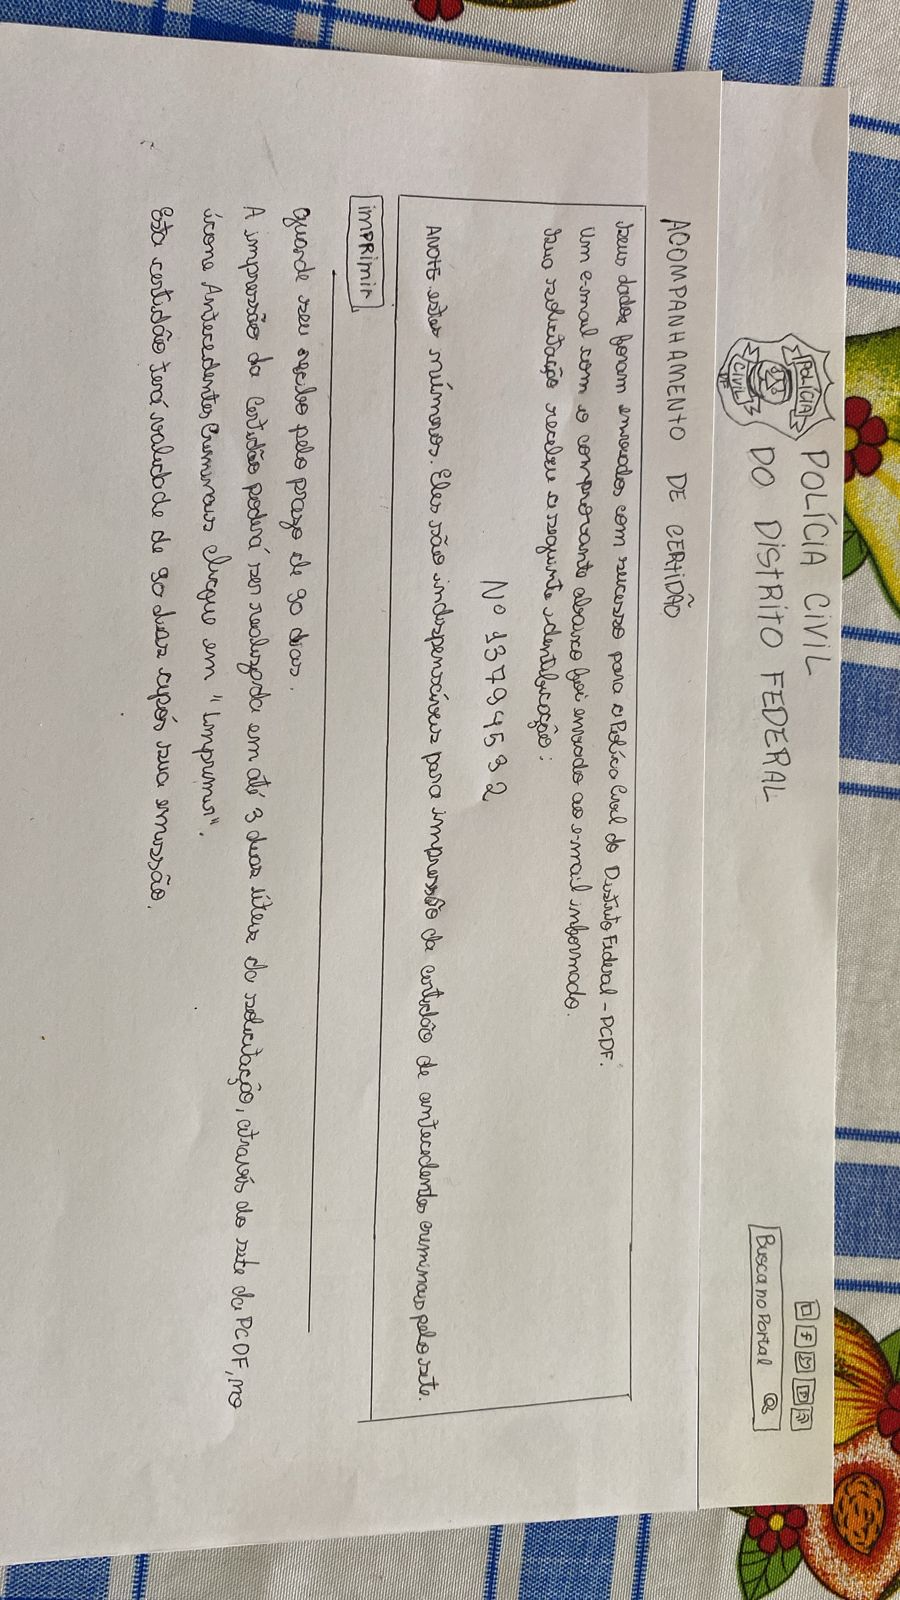 POLÍCIA CIVIL
DO DISTRITO FEDERAL
POLÍCIA
CIVIL
DF
Busca no Portal
ACOMPANHAMENTO DE CERTIDÃO
Seus dados foram enviados com sucesso para a Polícia Civil do Distrito Federal - PCDF.
Um e-mail com o comprovante abaixo foi enviado ao e-mail informado.
Sua solicitação recebeu a seguinte identificação:
Nº 13794532
ANOTE estes números. Eles são indispensáveis para impressão da certidão de antecedentes criminais pelo site.
imprimir
guarde seu recibo pelo prazo de 90 dias.
A impressão da Certidão poderá ser realizada em até 3 dias úteis da solicitação, através do site da PCDF, no
ícone Antecedentes Criminais clique em "Imprimir".
Esta certidão terá validade de 90 dias após sua emissão.